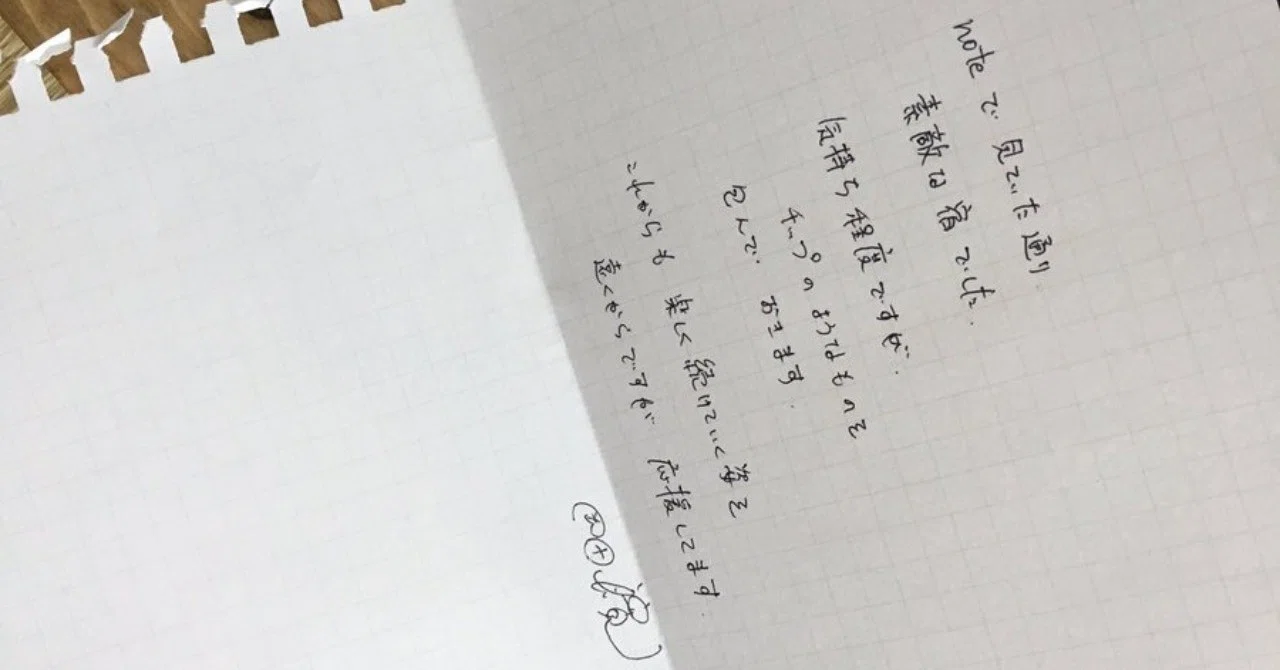 noteで見ていた通り
素敵な宿でした.
気持ち程度ですが.
チップのようなものを
包んでおきます.
これからも楽しく続けていく姿を
遠くからですが応援してます.